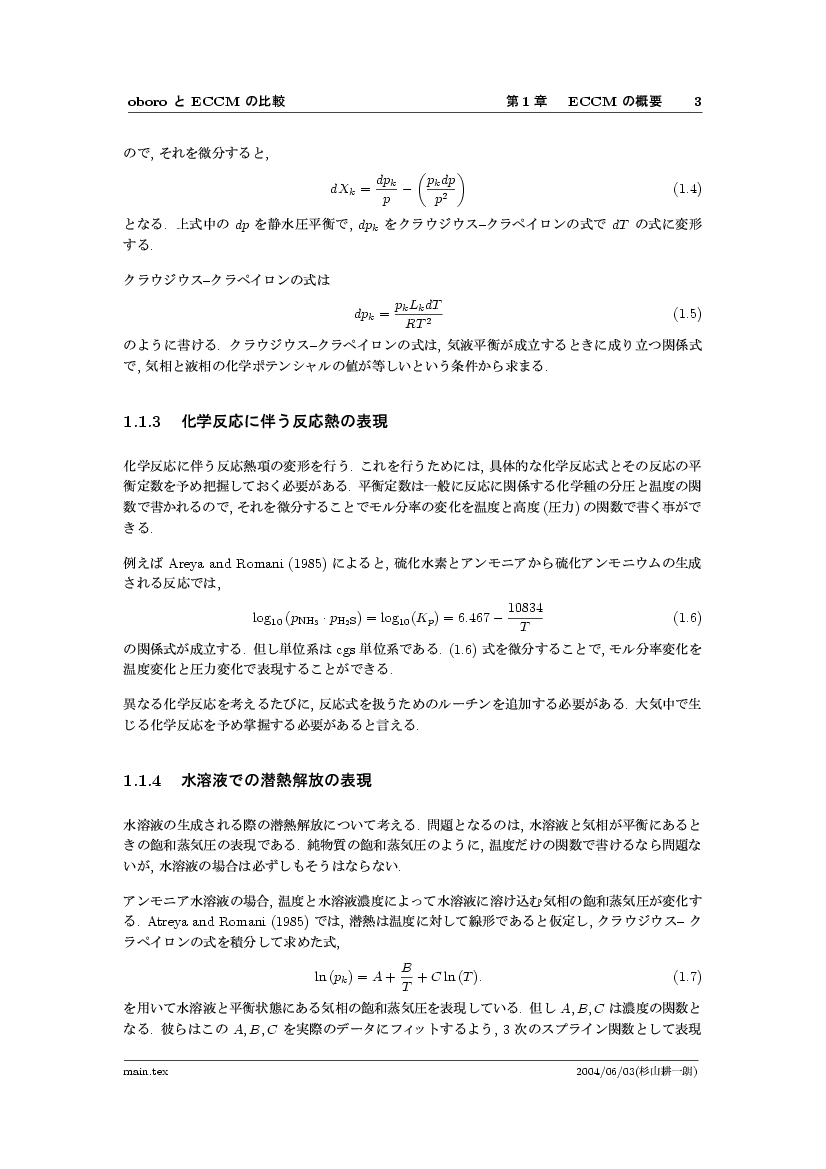 oboro と ECCM の比較 第 1 章 ECCM の概要 3
ので, それを微分すると,
dX_k = \frac{dp_k}{p} − \left(\frac{p_k dp}{p^2}\right) (1.4)
となる. 上式中の dp を静水圧平衡で, dp_k をクラウジウス–クラペイロンの式で dT の式に変形
する.
クラウジウス–クラペイロンの式は
dp_k = \frac{p_k L_k dT}{RT^2} (1.5)
のように書ける. クラウジウス–クラペイロンの式は, 気液平衡が成立するときに成り立つ関係式
で, 気相と液相の化学ポテンシャルの値が等しいという条件から求まる.
1.1.3 化学反応に伴う反応熱の表現
化学反応に伴う反応熱項の変形を行う. これを行うためには, 具体的な化学反応式とその反応の平
衡定数を予め把握しておく必要がある. 平衡定数は一般に反応に関係する化学種の分圧と温度の関
数で書かれるので, それを微分することでモル分率の変化を温度と高度 (圧力) の関数で書く事がで
きる.
例えば Areya and Romani (1985) によると, 硫化水素とアンモニアから硫化アンモニウムの生成
される反応では,
log_{10} (p_{NH_3} · p_{H_2S}) = log_{10}(K_p) = 6.467 − \frac{10834}{T} (1.6)
の関係式が成立する. 但し単位系は cgs 単位系である. (1.6) 式を微分することで, モル分率変化を
温度変化と圧力変化で表現することができる.
異なる化学反応を考えるたびに, 反応式を扱うためのルーチンを追加する必要がある. 大気中で生
じる化学反応を予め掌握する必要があると言える.
1.1.4 水溶液での潜熱解放の表現
水溶液の生成される際の潜熱解放について考える. 問題となるのは, 水溶液と気相が平衡にあると
きの飽和蒸気圧の表現である. 純物質の飽和蒸気圧のように, 温度だけの関数で書けるなら問題な
いが, 水溶液の場合は必ずしもそうはならない.
アンモニア水溶液の場合, 温度と水溶液濃度によって水溶液に溶け込む気相の飽和蒸気圧が変化す
る. Atreya and Romani (1985) では, 潜熱は温度に対して線形であると仮定し, クラウジウス– ク
ラペイロンの式を積分して求めた式,
ln (p_k) = A + \frac{B}{T} + C ln (T). (1.7)
を用いて水溶液と平衡状態にある気相の飽和蒸気圧を表現している. 但し A, B, C は濃度の関数と
なる. 彼らはこの A, B, C を実際のデータにフィットするよう, 3 次のスプライン関数として表現
main.tex 2004/06/03(杉山耕一朗)